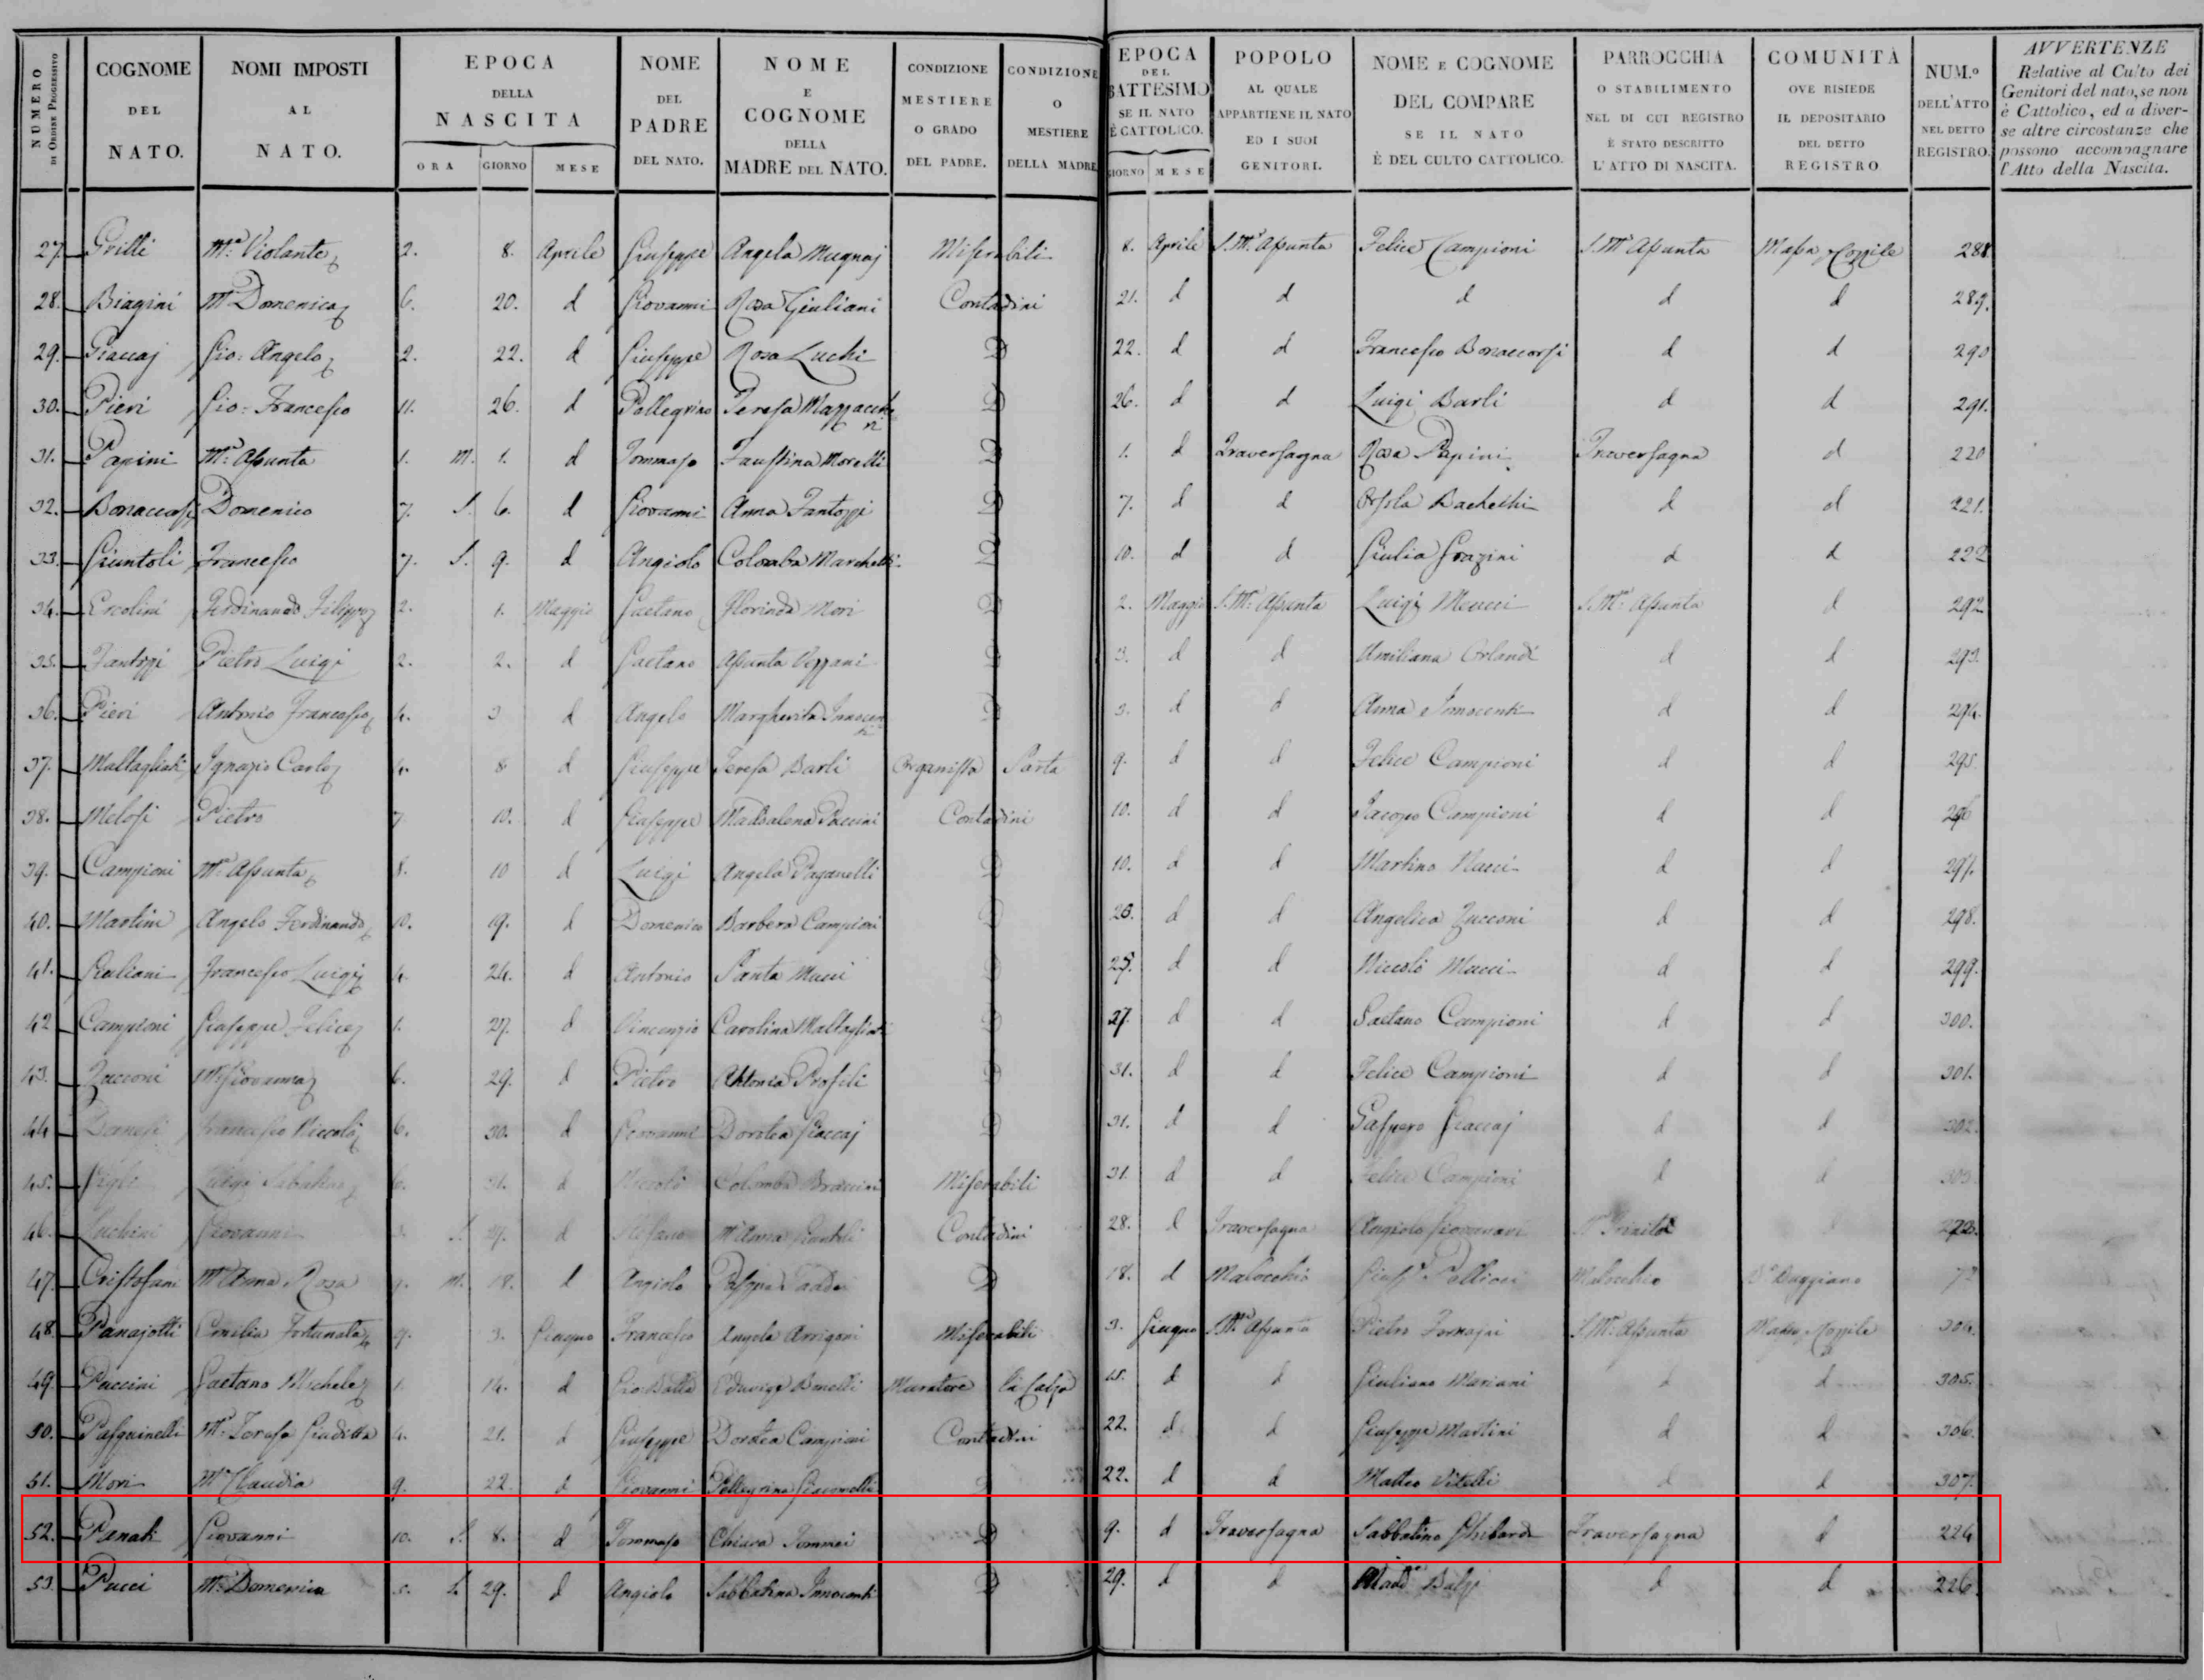 NUMERO DI ORDINE PROGRESSIVO
COGNOME DEL NATO.
NOMI IMPOSTI AL NATO.
EPOCA DELLA NASCITA
ORA GIORNO MESE
NOME DEL PADRE DEL NATO.
NOME E COGNOME DELLA MADRE DEL NATO.
CONDIZIONE MESTIERE O GRADO DEL PADRE.
CONDIZIONE O MESTIERE DELLA MADRE
EPOCA DEL BATTESIMO SE IL NATO È CATTOLICO.
GIORNO MESE
POPOLO AL QUALE APPARTIENE IL NATO ED I SUOI GENITORI.
NOME E COGNOME DEL COMPARE SE IL NATO È DEL CULTO CATTOLICO.
PARROCCHIA O STABILIMENTO NEL DI CUI REGISTRO È STATO DESCRITTO L'ATTO DI NASCITA.
COMUNITÀ OVE RISIEDE IL DEPOSITARIO DEL DETTO REGISTRO
NUM.º DELL'ATTO NEL DETTO REGISTRO.
AVVERTENZE Relative al Culto dei Genitori del nato, se non è Cattolico, ed a diverse altre circostanze che possono accompagnare l'Atto della Nascita.
27. Gritti Mª Violante 2. 8. Aprile Giuseppe Angela Mugnaj Miserabili 8. Aprile S. Mª Assunta Felice Campioni S. Mª Assunta Massa e Cozzile 288.
28. Biagini Mª Domenica 6. 20. d Giovanni Rosa Giuliani Contadini 21. d d d d d 289.
29. Giaccaj Gio: Angelo 2. 22. d Giuseppe Rosa Luchi D 22. d d Francesco Bonaccorsi d d 290
30. Pieri Gio: Francesco 11. 26. d Pellegrino Teresa Mazzaccheri D 26. d d Luigi Barli d d 291.
31. Papini Mª Assunta 1. M. 1. d Tommaso Faustina Moretti D 1. d Traversagna Rosa Papini Traversagna d 220
32. Domenico 7. S. 6. d Giovanni Anna Fantozzi D 7. d d Orsola Bachechi d d 221.
33. Giuntoli Francesco 7. S. 9. d Angiolo Colomba Marchetti D 10. d d Giulia Grazini d d 222
34. Ercolini Ferdinando Filippo 2. 1. Maggio Gaetano Florinda Mori D 2. Maggio S. Mª Assunta Luigi Meucci S. Mª Assunta d 292
35. Fantozzi Pietro Luigi 2. 2. d Gaetano Assunta Vezzani D 3. d d Umiliana Orlandi d d 293.
36. Pieri Antonio Francesco 4. 3 d Angelo Margherita Innocenti D 3. d d Anna Innocenti d d 294.
37. Maltagliati Ignazio Carlo 4. 8 d Giuseppe Teresa Barli Organista Sarta 9. d d Felice Campioni d d 295
38. Melosi Pietro 7 10. d Giuseppe Maddalena Puccini Contadini 10. d d Jacopo Campioni d d 296
39. Campioni Mª Assunta 8. 10 d Luigi Angela Paganelli D 10. d d Martino Nucci d d 297.
40. Martini Angelo Ferdinando 10. 19. d Domenico Barbera Campioni D 20. d d Angelica Zucconi d d 298.
41. Giuliani Francesco Luigi 4. 24. d Antonio Santa Mucci D 25. d d Niccolò Mucci d d 299.
42 Campioni Giuseppe Felice 1. 27. d Vincenzio Carolina Maltagliati D 27. d d Gaetano Campioni d d 300.
43. Zucconi Mª Giovanna 6. 29. d Pietro Antonia Profili D 31. d d Felice Campioni d d 301.
44 Francesco Niccolò 6. 30. d Giovanni Dorotea Giaccaj D 31. d d Gaspero Giaccaj d d 302.
45. Luigi Sabatino 6. 31. d Niccolò Colomba Braccini Miserabili 31. d d Felice Campioni d d 303.
46. Luchini Giovanni 3. S. 27. d Stefano Mª Anna Contadini 28. d Traversagna Angiolo SS. Trinità d 272.
47. Cristofani Mª Anna Rosa 9. M. 18. d Angiolo D 18. d Malocchio Malocchio Buggiano 72
48. Panajotti Emilia Fortunata 9. 3. Giugno Francesco Angela Arrigoni Miserabili 3. Giugno S. Mª Assunta Pietro Fornajni S. Mª Assunta Massa e Cozzile 304.
49. Puccini Gaetano Michele 1. 14. d Gio Batta Eduvige Bonelli Muratore 15. d d Giuliano Mariani d d 305.
50. Pasquinelli Mª Teresa Giuditta 4. 21. d Giuseppe Dorotea Campioni Contadini 22. d d Giuseppe Martini d d 306.
51. Mori Mª Claudia 9. 22. d Giovanni Pellegrina Giacomelli D 22. d d Matteo Vitelli d d 307.
52. Penati Giovanni 10. S. 8. d Tommaso Chiara Tommei D 9. d Traversagna Sabbatino Ghilardi Traversagna d 224
53. Pucci Mª Domenica S. 29. d Angiolo Sabbatina Innocenti D 29. d d Madd. Balzi d d 226.